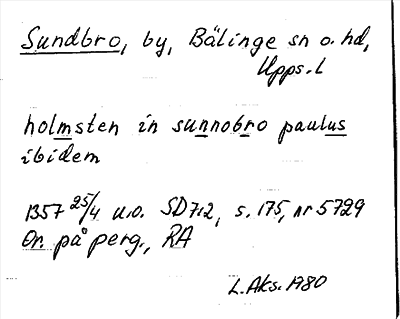 Sundbro, by, Bälinge sn o. hd,
Upps. L
holmsten in sunnobro paulus
ibidem
1357 25/4 u.o. SD7:2, s. 175, nr 5729
Or. på perg., RA
L. Aks. 1980